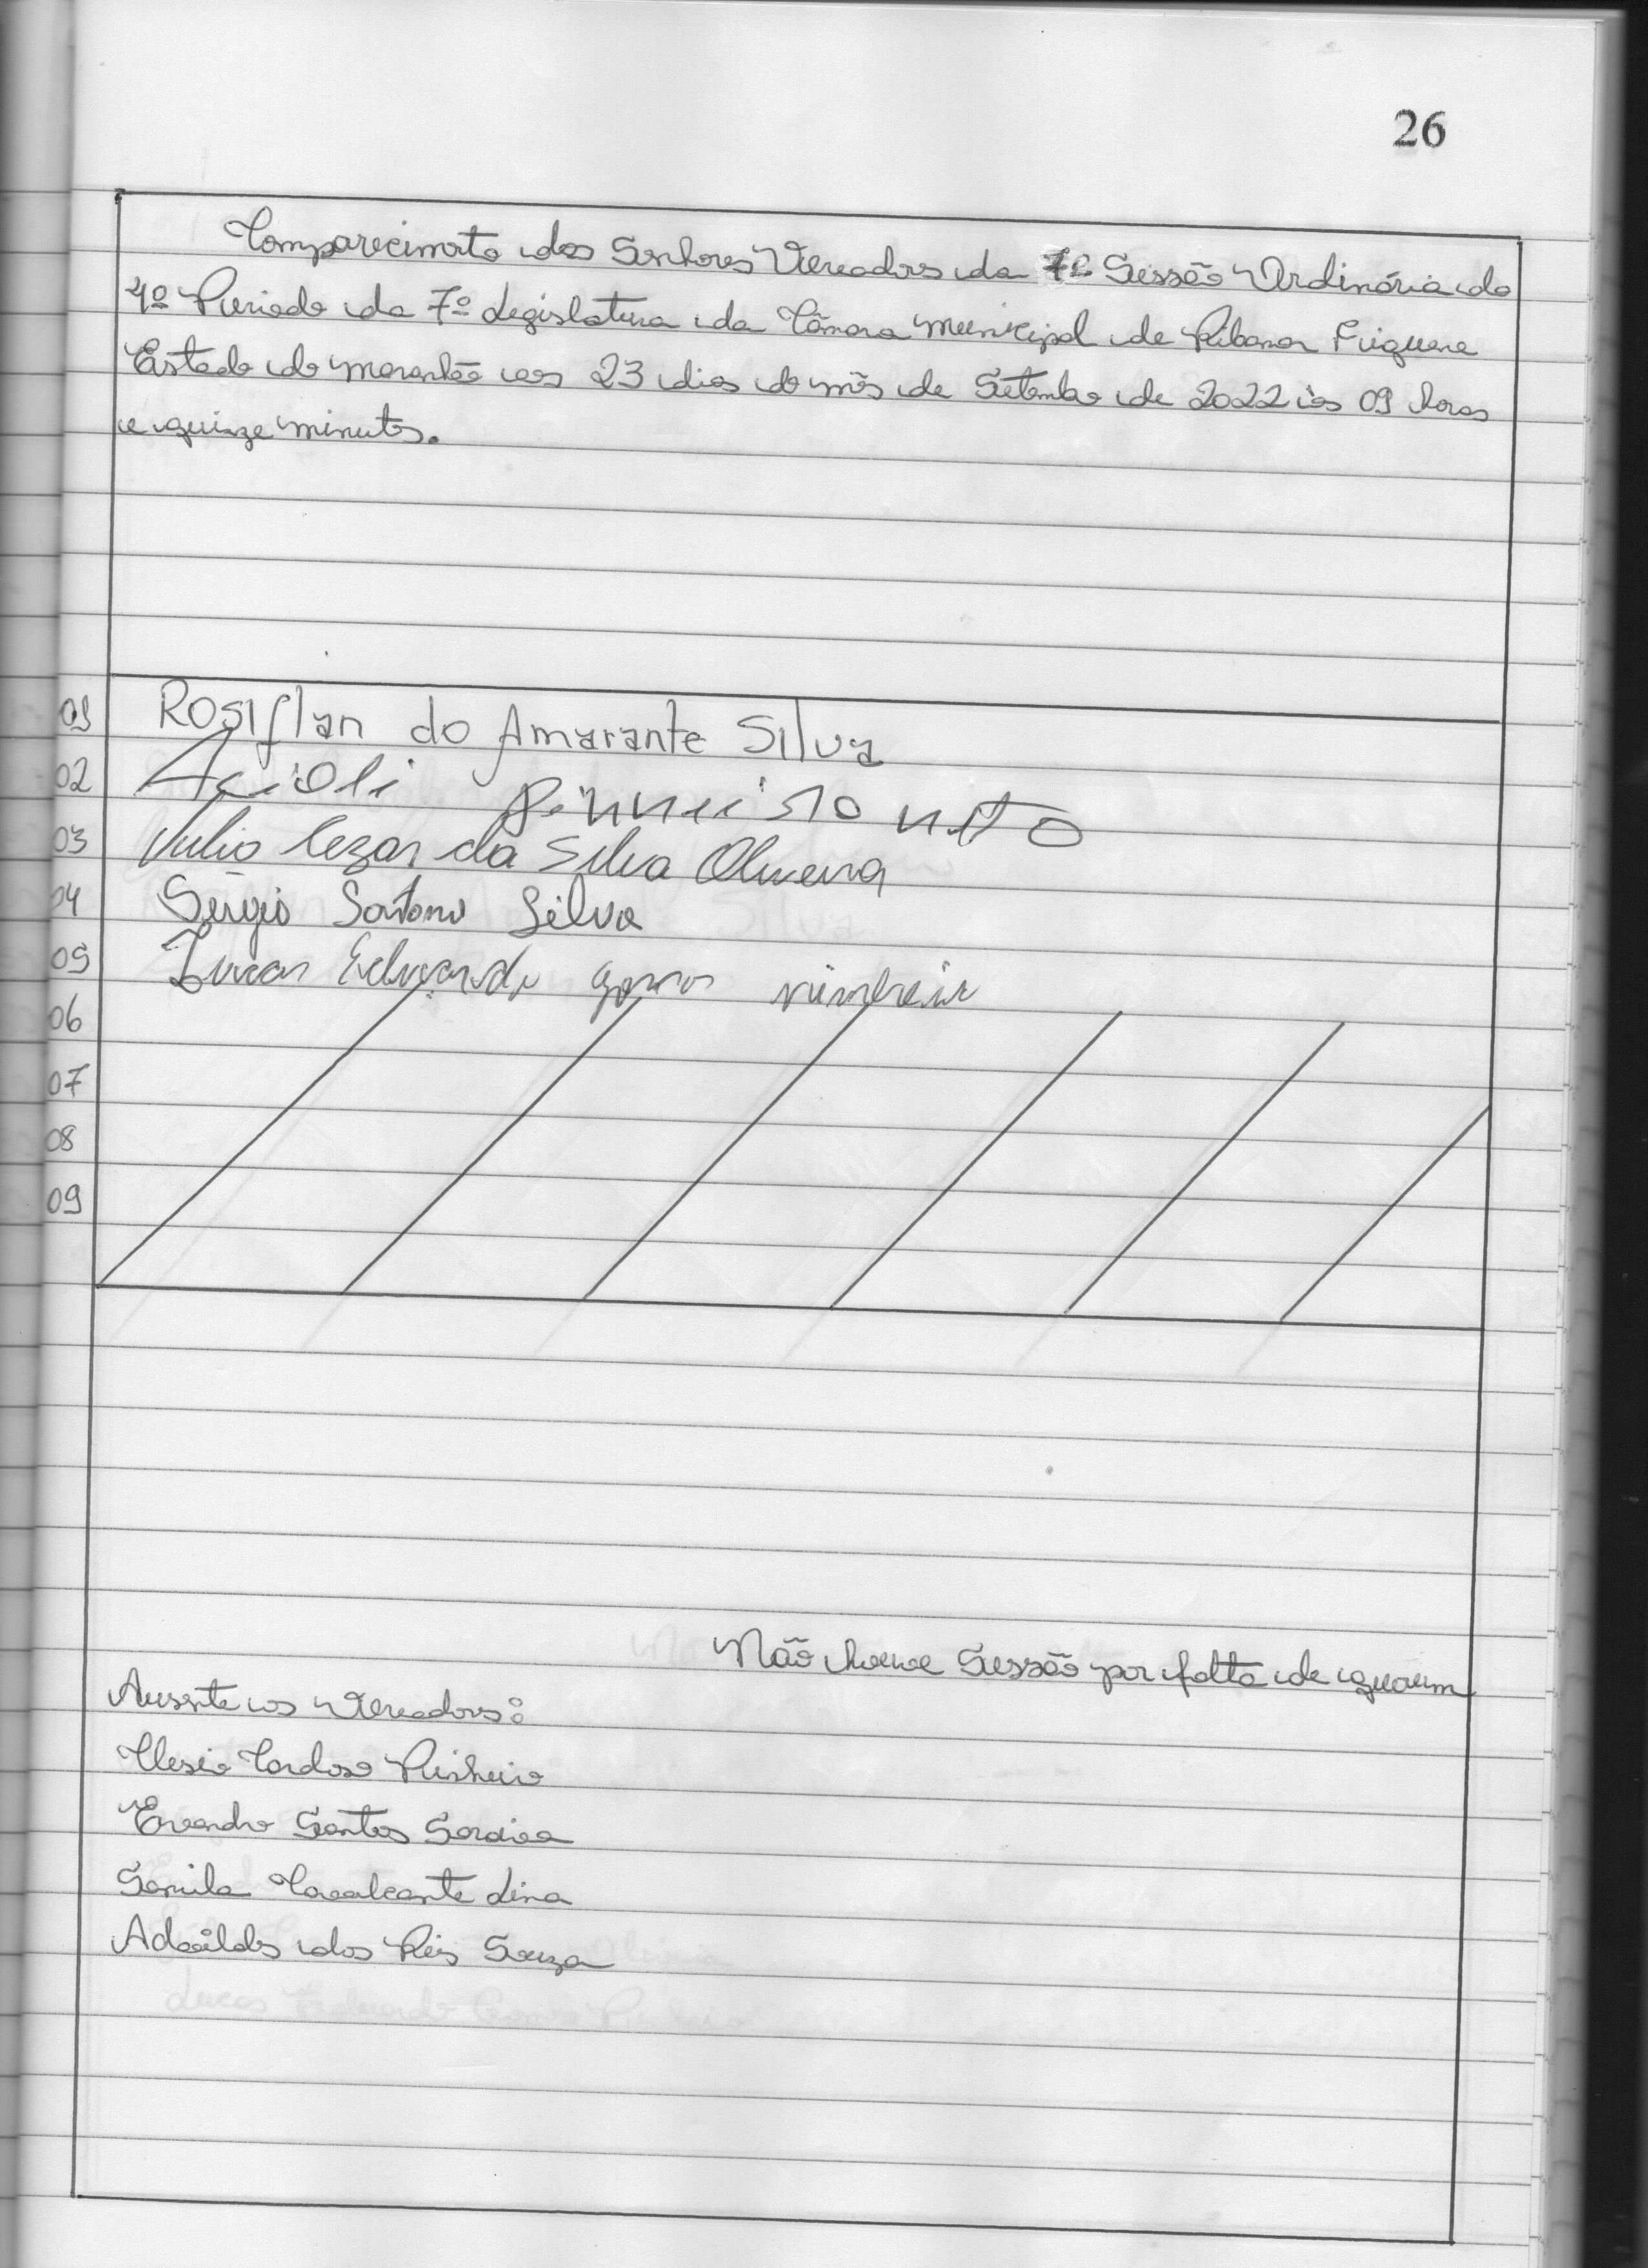 26
Comparecimento dos Senhores Vereadores da 7ª Sessão Ordinária do
4º Periodo da 7º Legislatura da Câmara Municipal de Ribamar Fiquene
Estado do Maranhão aos 23 dias do mês de Setembro de 2022 às 09 horas
e quinze minutos.
01 Rosiflan do Amarante Silva
02 Acioli Pinheiro neto
03 Julio Cezar da Silva Oliveira
04 Sérgio Santana Silva
05 Lucas Eduardo gomes
06
07
08
09
Não houve Sessão por falta de quorum
Ausente os Vereadores:
Clesio Cardoso Pinheiro
Evandro Santos Saraiva
Samila Cavalcante Lima
Adailds dos Reis Souza